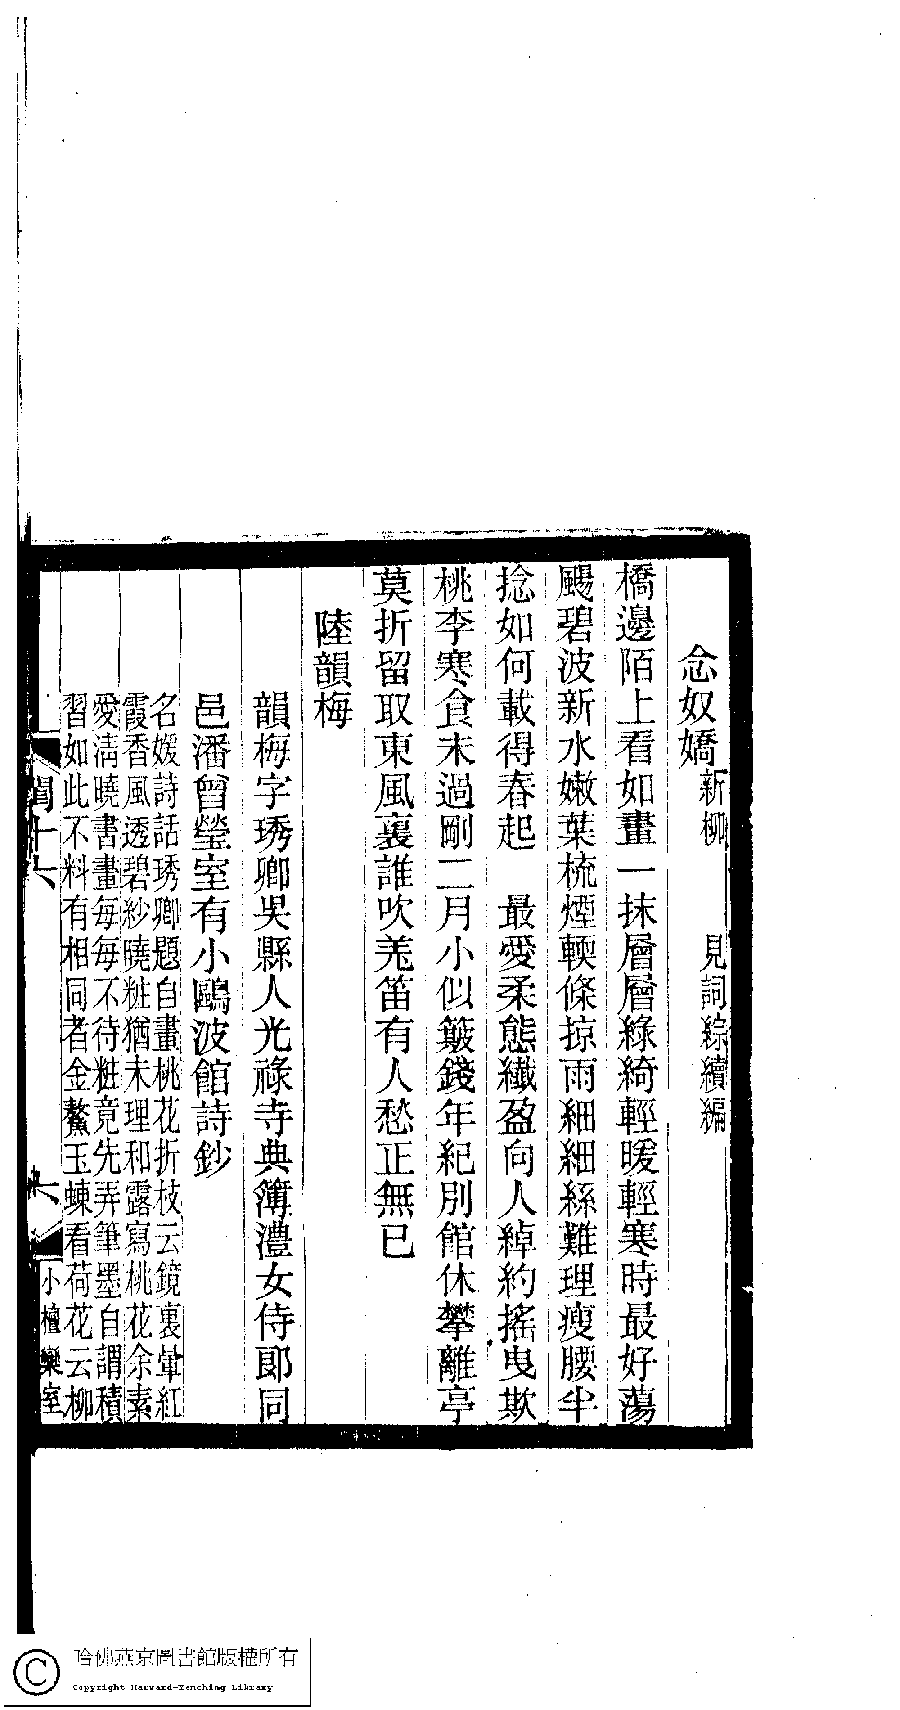 念奴嬌 新柳 見詞綜續編
橋邊陌上看如畫一抹層層綠綺輕暖輕寒時最好蕩
颺碧波新水嫩葉梳煙輭條掠雨細細絲難理瘦腰半
捻如何載得春起 最愛柔態纖盈向人綽約搖曳欺
桃李寒食未過剛二月小似簸錢年紀別館休攀離亭
莫折留取東風裏誰吹羌笛有人愁正無已
陸韻梅
韻梅字琇卿吳縣人光祿寺典簿澧女侍郎同
邑潘曾瑩室有小鷗波館詩鈔
名媛詩話琇卿題自畫桃花折枝云鏡裏暈紅
霞香風透碧紗曉粧猶未理和露寫桃花余素
愛清曉書畫每每不待粧竟先弄筆墨自謂積
習如此不料有相同者金鰲玉蝀看荷花云柳
閨十六
六
小檀欒室
哈佛燕京圖書館版權所有
Copyright Harvard-Yenching Library